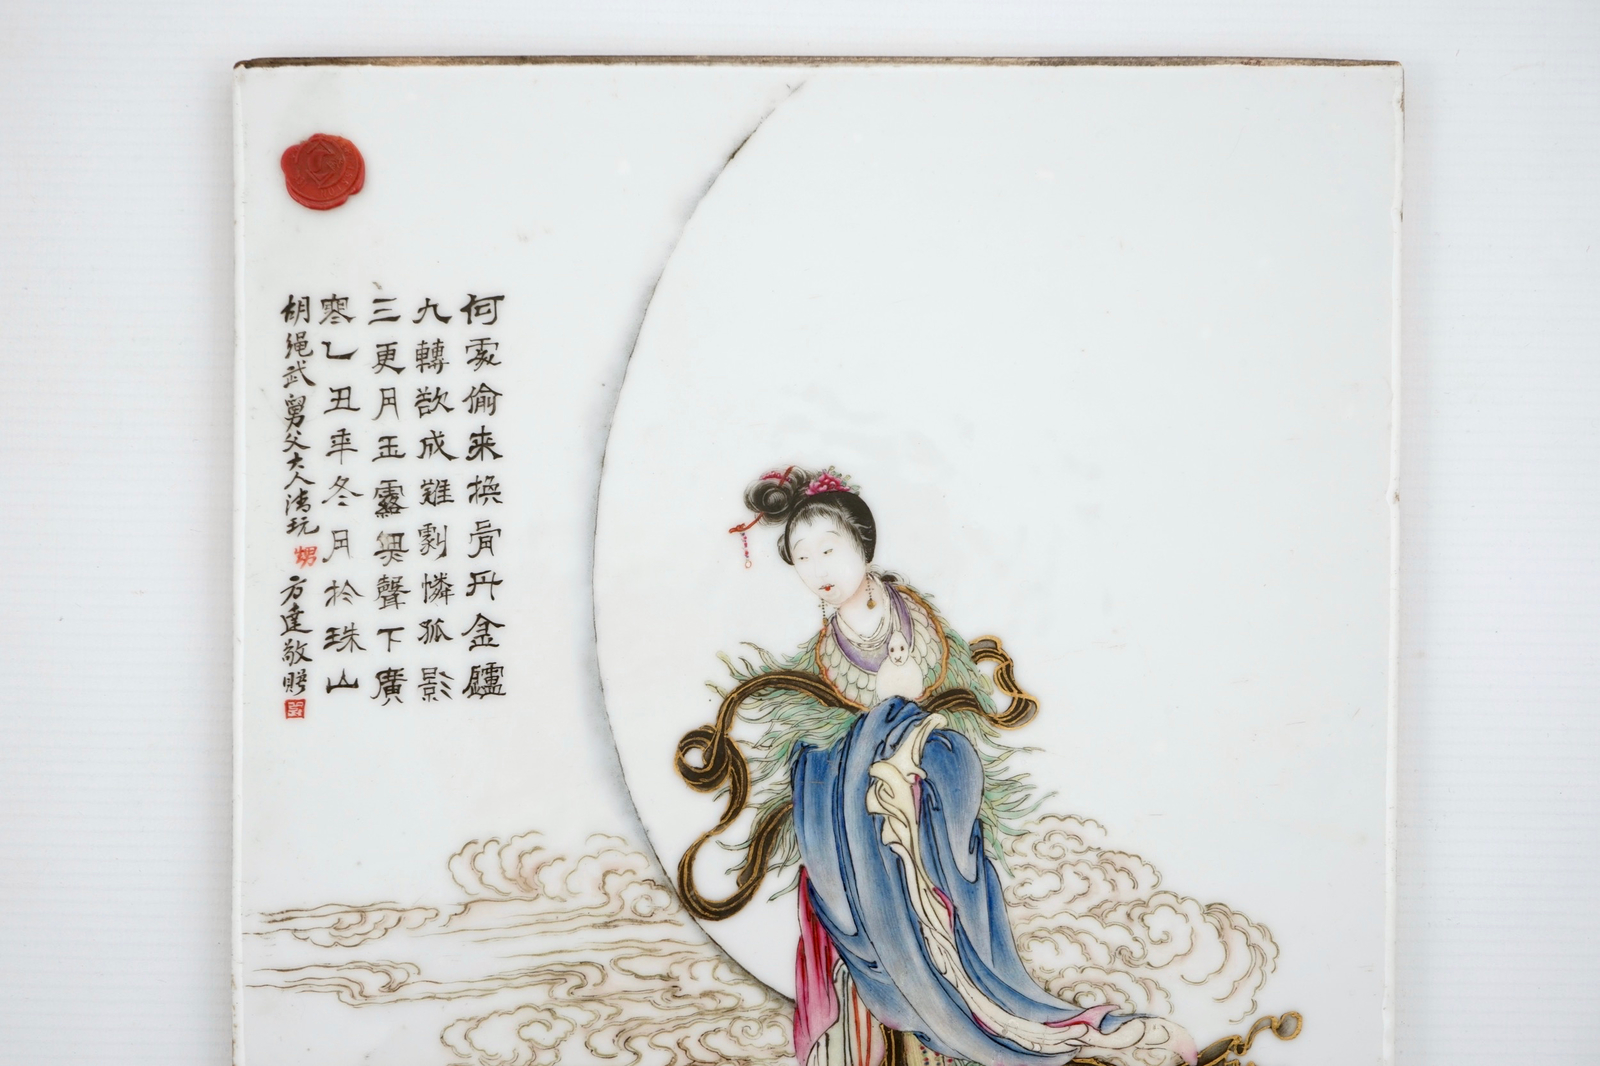 何處偷来換骨丹金鑪
九轉欲成難劇憐孤影
三更月玉露無聲下廣
寒乙丑年冬月於珠山
胡繩武舅父大人清玩 甥 方達敬贈